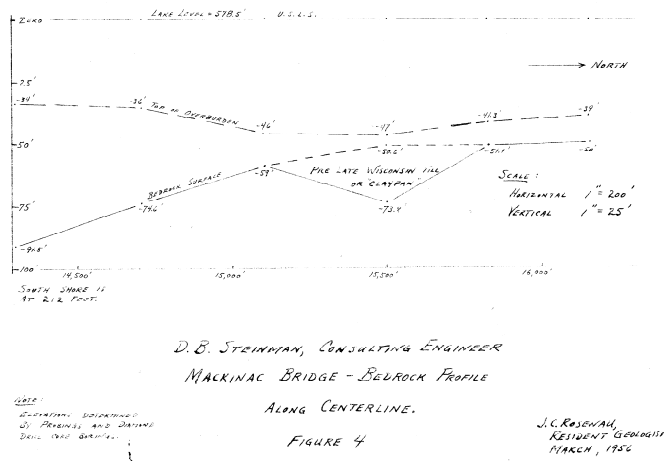 LAKE LEVEL = 578.5' U.S.L.S.
ZERO
NORTH
-34' -36' TOP OF OVERBURDEN -46' -47' -41.3' -39'
-50' -50.6' -51.1' -50'
BEDROCK SURFACE -59' PRE LATE WISCONSIN TILL
OR "CLAYPAN"
SCALE:
HORIZONTAL 1"= 200'
VERTICAL 1"= 25'
-75' -74.6' -73.4'
-91.5'
-100
14,500' 15,000' 15,500' 16,000'
SOUTH SHORE IS
AT 212 FOOT.
D. B. STEINMAN, CONSULTING ENGINEER
MACKINAC BRIDGE - BEDROCK PROFILE
ALONG CENTERLINE.
FIGURE 4
NOTE:
ELEVATIONS DETERMINED
BY PROBINGS AND DIAMOND
DRILL CORE BORINGS.
J. C. ROSENAU,
RESIDENT GEOLOGIST
MARCH, 1956